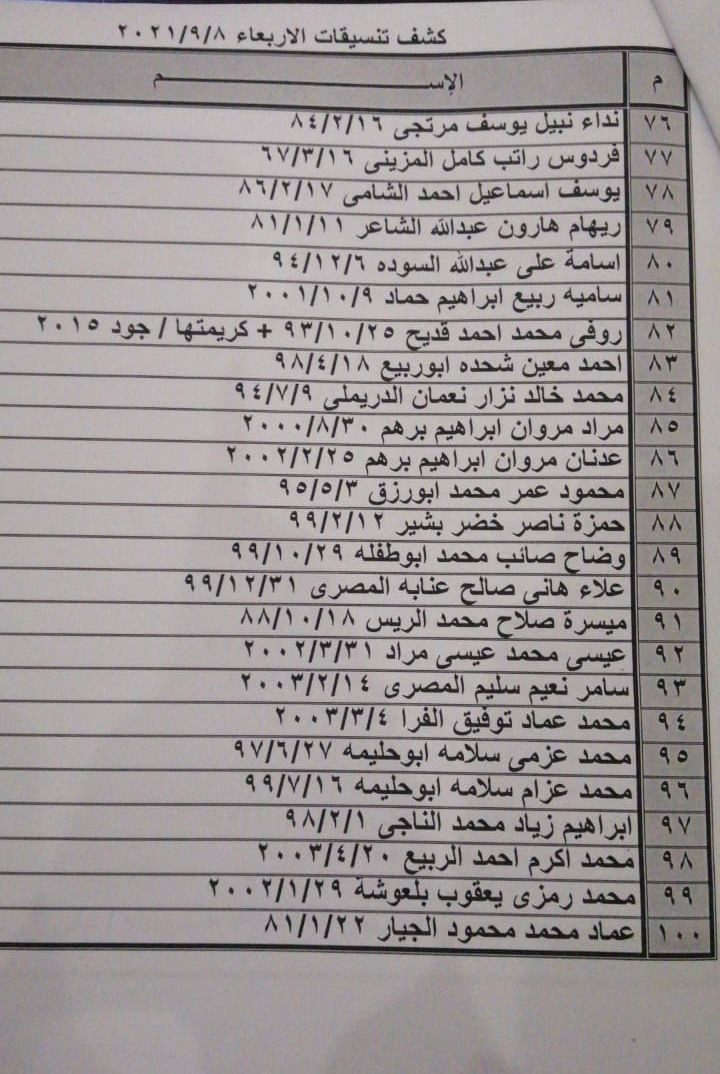 كشف تنسيقات الاربعاء ٢٠٢١/٩/٨
م الإســـــــم
٧٦ نداء نبيل يوسف مرتجى ٨٤/٢/١٦
٧٧ فردوس راتب كامل المزينى ٦٧/٣/١٦
٧٨ يوسف اسماعيل احمد الشامى ٨٦/٢/١٧
٧٩ ريهام هارون عبدالله الشاعر ٨١/١/١١
٨٠ اسامة على عبدالله السوده ٩٤/١٢/٦
٨١ ساميه ربيع ابراهيم حماد ٢٠٠١/١٠/٩
٨٢ روفى محمد احمد قديح ٩٣/١٠/٢٥ + كريمتها / جود ٢٠١٥
٨٣ احمد معين شحده ابوربيع ٩٨/٤/١٨
٨٤ محمد خالد نزار نعمان الدريملى ٩٤/٧/٩
٨٥ مراد مروان ابراهيم برهم ٢٠٠٠/٨/٣٠
٨٦ عدنان مروان ابراهيم برهم ٢٠٠٢/٢/٢٥
٨٧ محمود عمر محمد ابورزق ٩٥/٥/٣
٨٨ حمزة ناصر خضر بشير ٩٩/٢/١٢
٨٩ وضاح صائب محمد ابوطفله ٩٩/١٠/٢٩
٩٠ علاء هانى صالح عنابه المصرى ٩٩/١٢/٣١
٩١ ميسرة صلاح محمد الريس ٨٨/١٠/١٨
٩٢ عيسى محمد عيسى مراد ٢٠٠٢/٣/٣١
٩٣ سامر نعيم سليم المصرى ٢٠٠٣/٢/١٤
٩٤ محمد عماد توفيق الفرا ٢٠٠٣/٣/٤
٩٥ محمد عزمى سلامه ابوحليمه ٩٧/٦/٢٧
٩٦ محمد عزام سلامه ابوحليمه ٩٩/٧/١٦
٩٧ ابراهيم زياد محمد الناجى ٩٨/٢/١
٩٨ محمد اكرم احمد الربيع ٢٠٠٣/٤/٢٠
٩٩ محمد رمزى يعقوب بلعوشة ٢٠٠٢/١/٢٩
١٠٠ عماد محمد محمود الجيار ٨١/١/٢٢